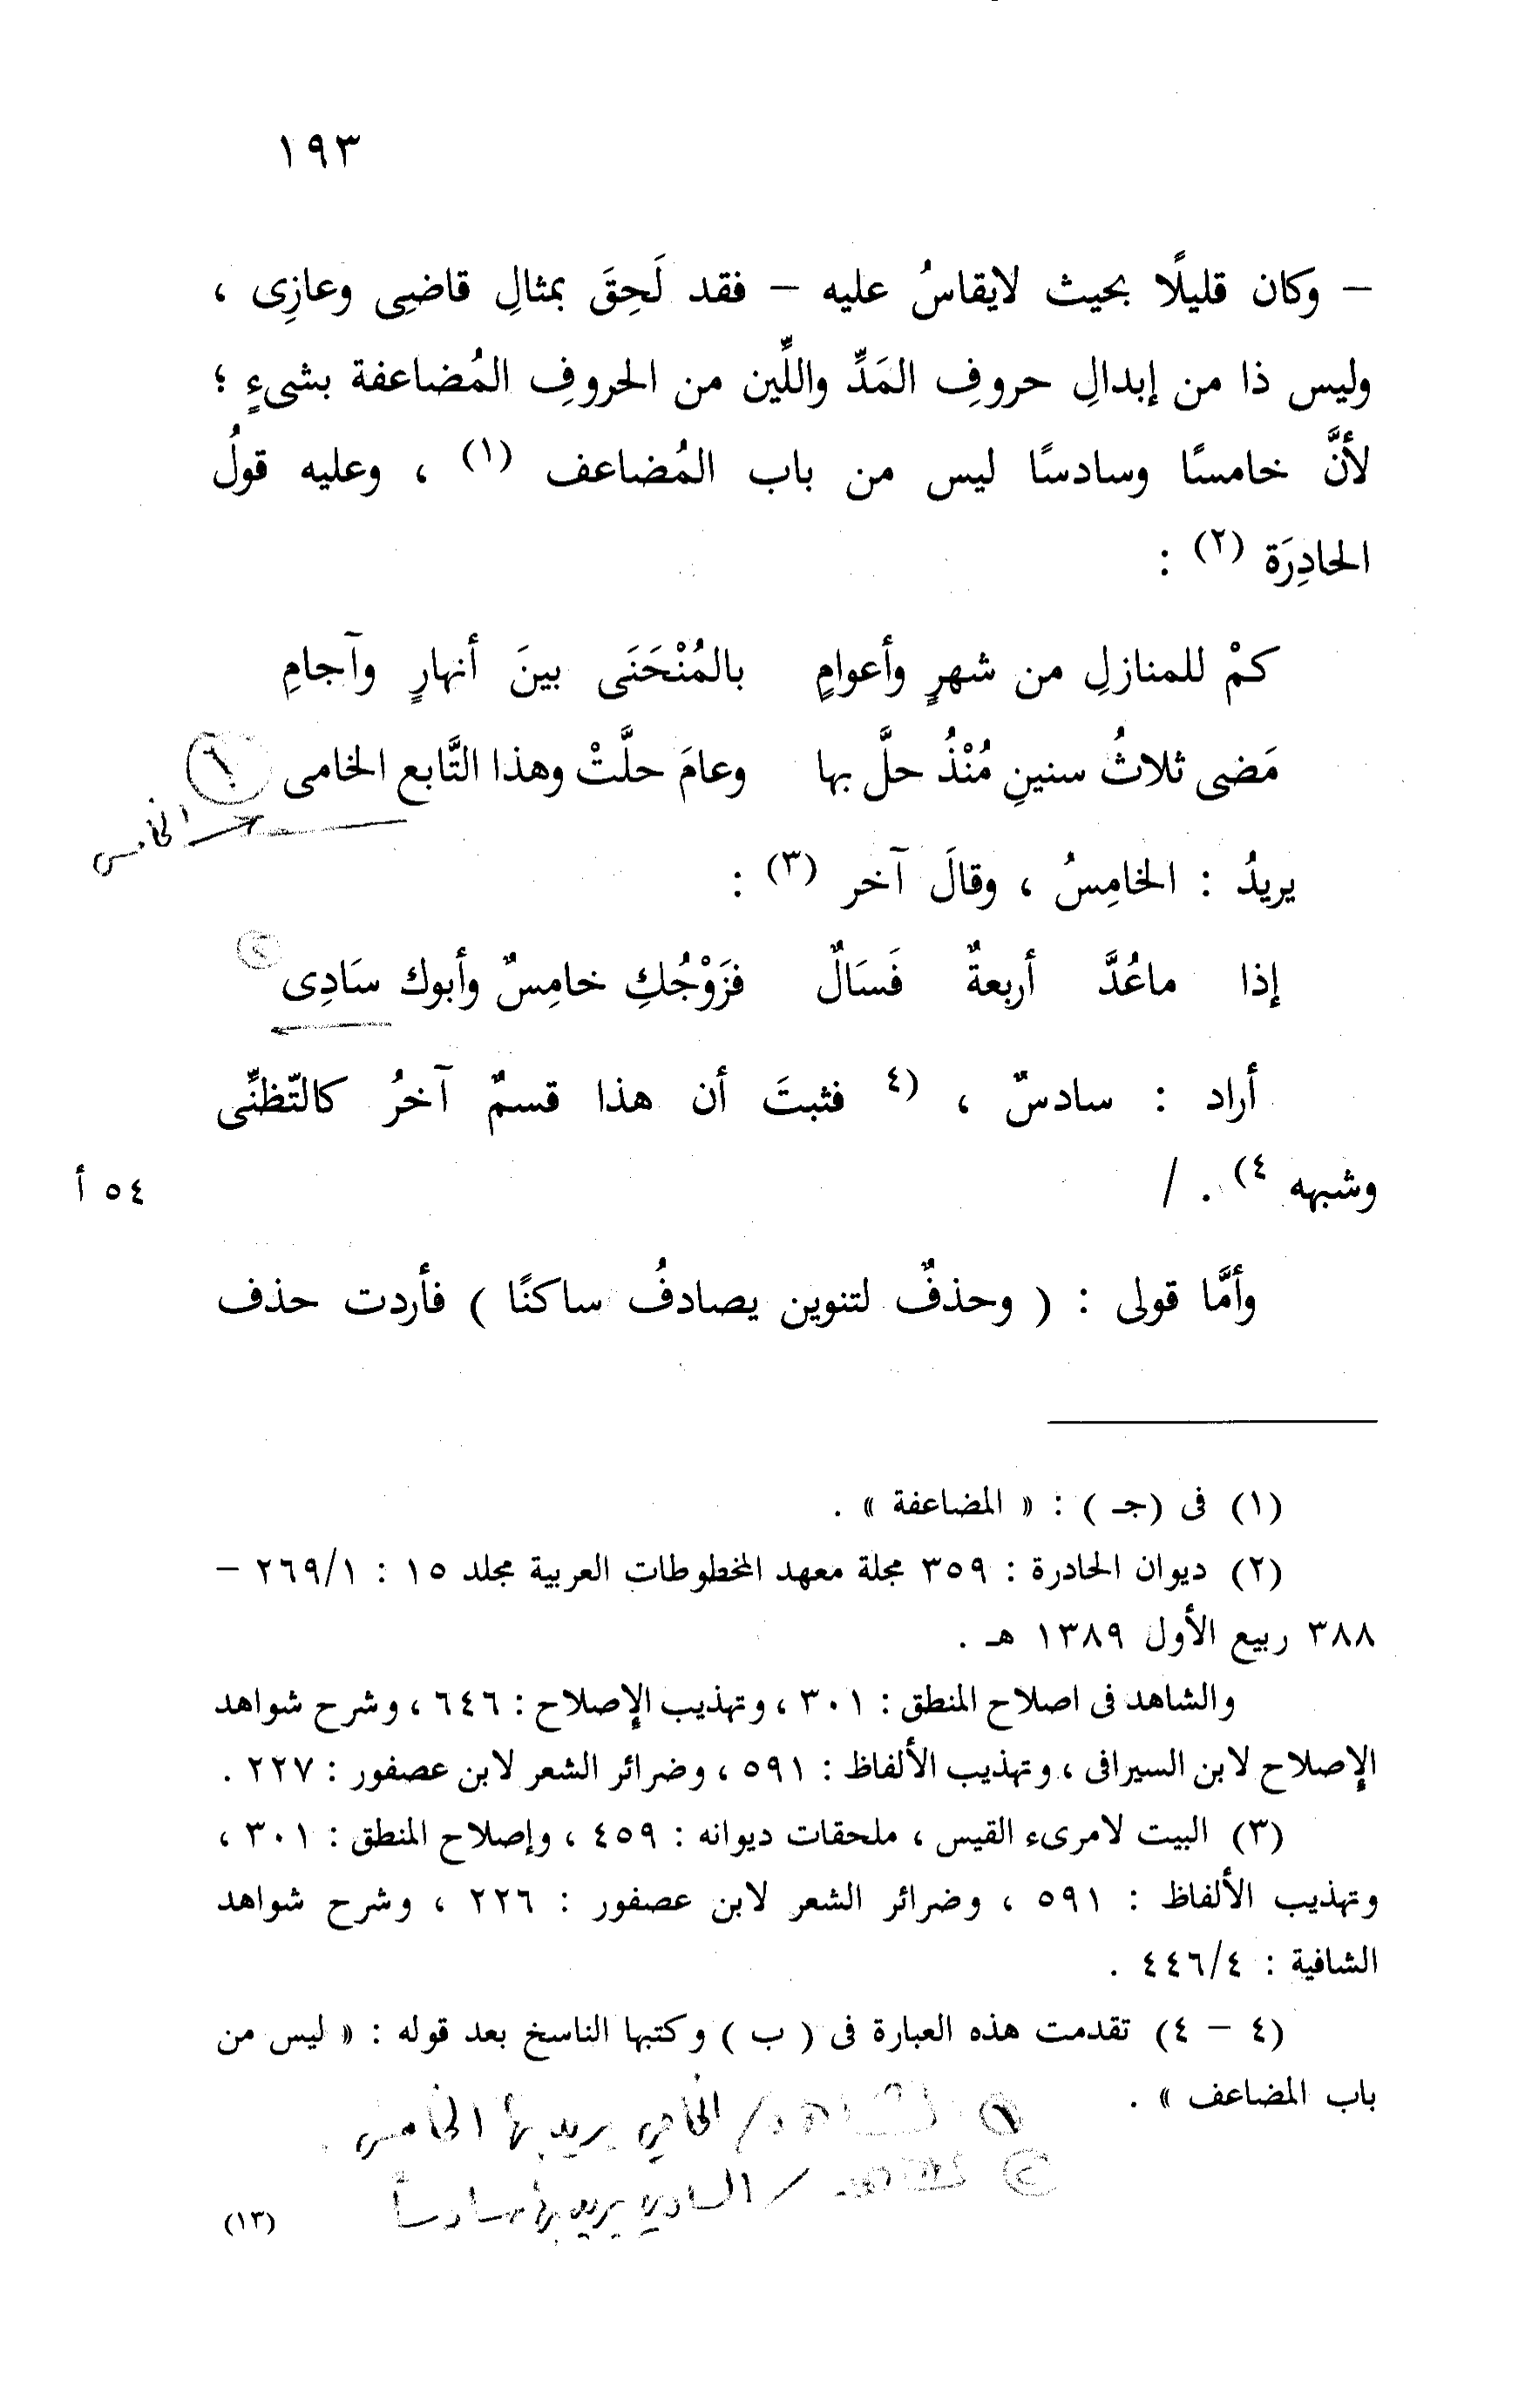 ١٩٣
– وكان قليلًا بحيث لايقاسُ عليه – فقد لَحِقَ بمثالِ قاضِى وعازِى ،
وليس ذا من إبدالِ حروفِ المَدِّ واللِّين من الحروفِ المُضاعفة بشىءٍ ؛
لأنَّ خامسًا وسادسًا ليس من باب المُضاعف (١) ، وعليه قولُ
الحادِرَة (٢) :
كمْ للمنازلِ من شهرٍ وأعوامٍ بالمُنْحَنَى بينَ أنهارٍ وآجامِ
مَضى ثلاثُ سنينِ مُنْذُ حلَّ بها وعامَ حلَّتْ وهذا التَّابع الخامى ١
الخامس
يريدُ : الخامِسُ ، وقالَ آخر (٣) :
إذا ماعُدَّ أربعةٌ فَسَالٌ فزَوْجُكِ خامِسٌ وأبوك سَادِى ٢
أراد : سادسٌ ، (٤ فثبتَ أن هذا قسمٌ آخرُ كالتّظنِّى
وشبهه ٤) . /
٥٤ أ
وأمَّا قولى : ( وحذفٌ لتنوين يصادفُ ساكنًا ) فأردت حذف
(١) فى (جـ ) : « المضاعفة » .
(٢) ديوان الحادرة : ٣٥٩ مجلة معهد المخطوطات العربية مجلد ١٥ : ٢٦٩/١ –
٣٨٨ ربيع الأول ١٣٨٩ هـ .
والشاهد فى اصلاح المنطق : ٣٠١ ، وتهذيب الإصلاح : ٦٤٦ ، وشرح شواهد
الإصلاح لابن السيرافى ، وتهذيب الألفاظ : ٥٩١ ، وضرائر الشعر لابن عصفور : ٢٢٧ .
(٣) البيت لامرىء القيس ، ملحقات ديوانه : ٤٥٩ ، وإصلاح المنطق : ٣٠١ ،
وتهذيب الألفاظ : ٥٩١ ، وضرائر الشعر لابن عصفور : ٢٢٦ ، وشرح شواهد
الشافية : ٤٤٦/٤ .
(٤ – ٤) تقدمت هذه العبارة فى ( ب ) وكتبها الناسخ بعد قوله : « ليس من
باب المضاعف » .
١ الشاهد / الخامي يريد بها الخامس .
٢ الشاهد / السادي يريد بها سادساً
(١٣)